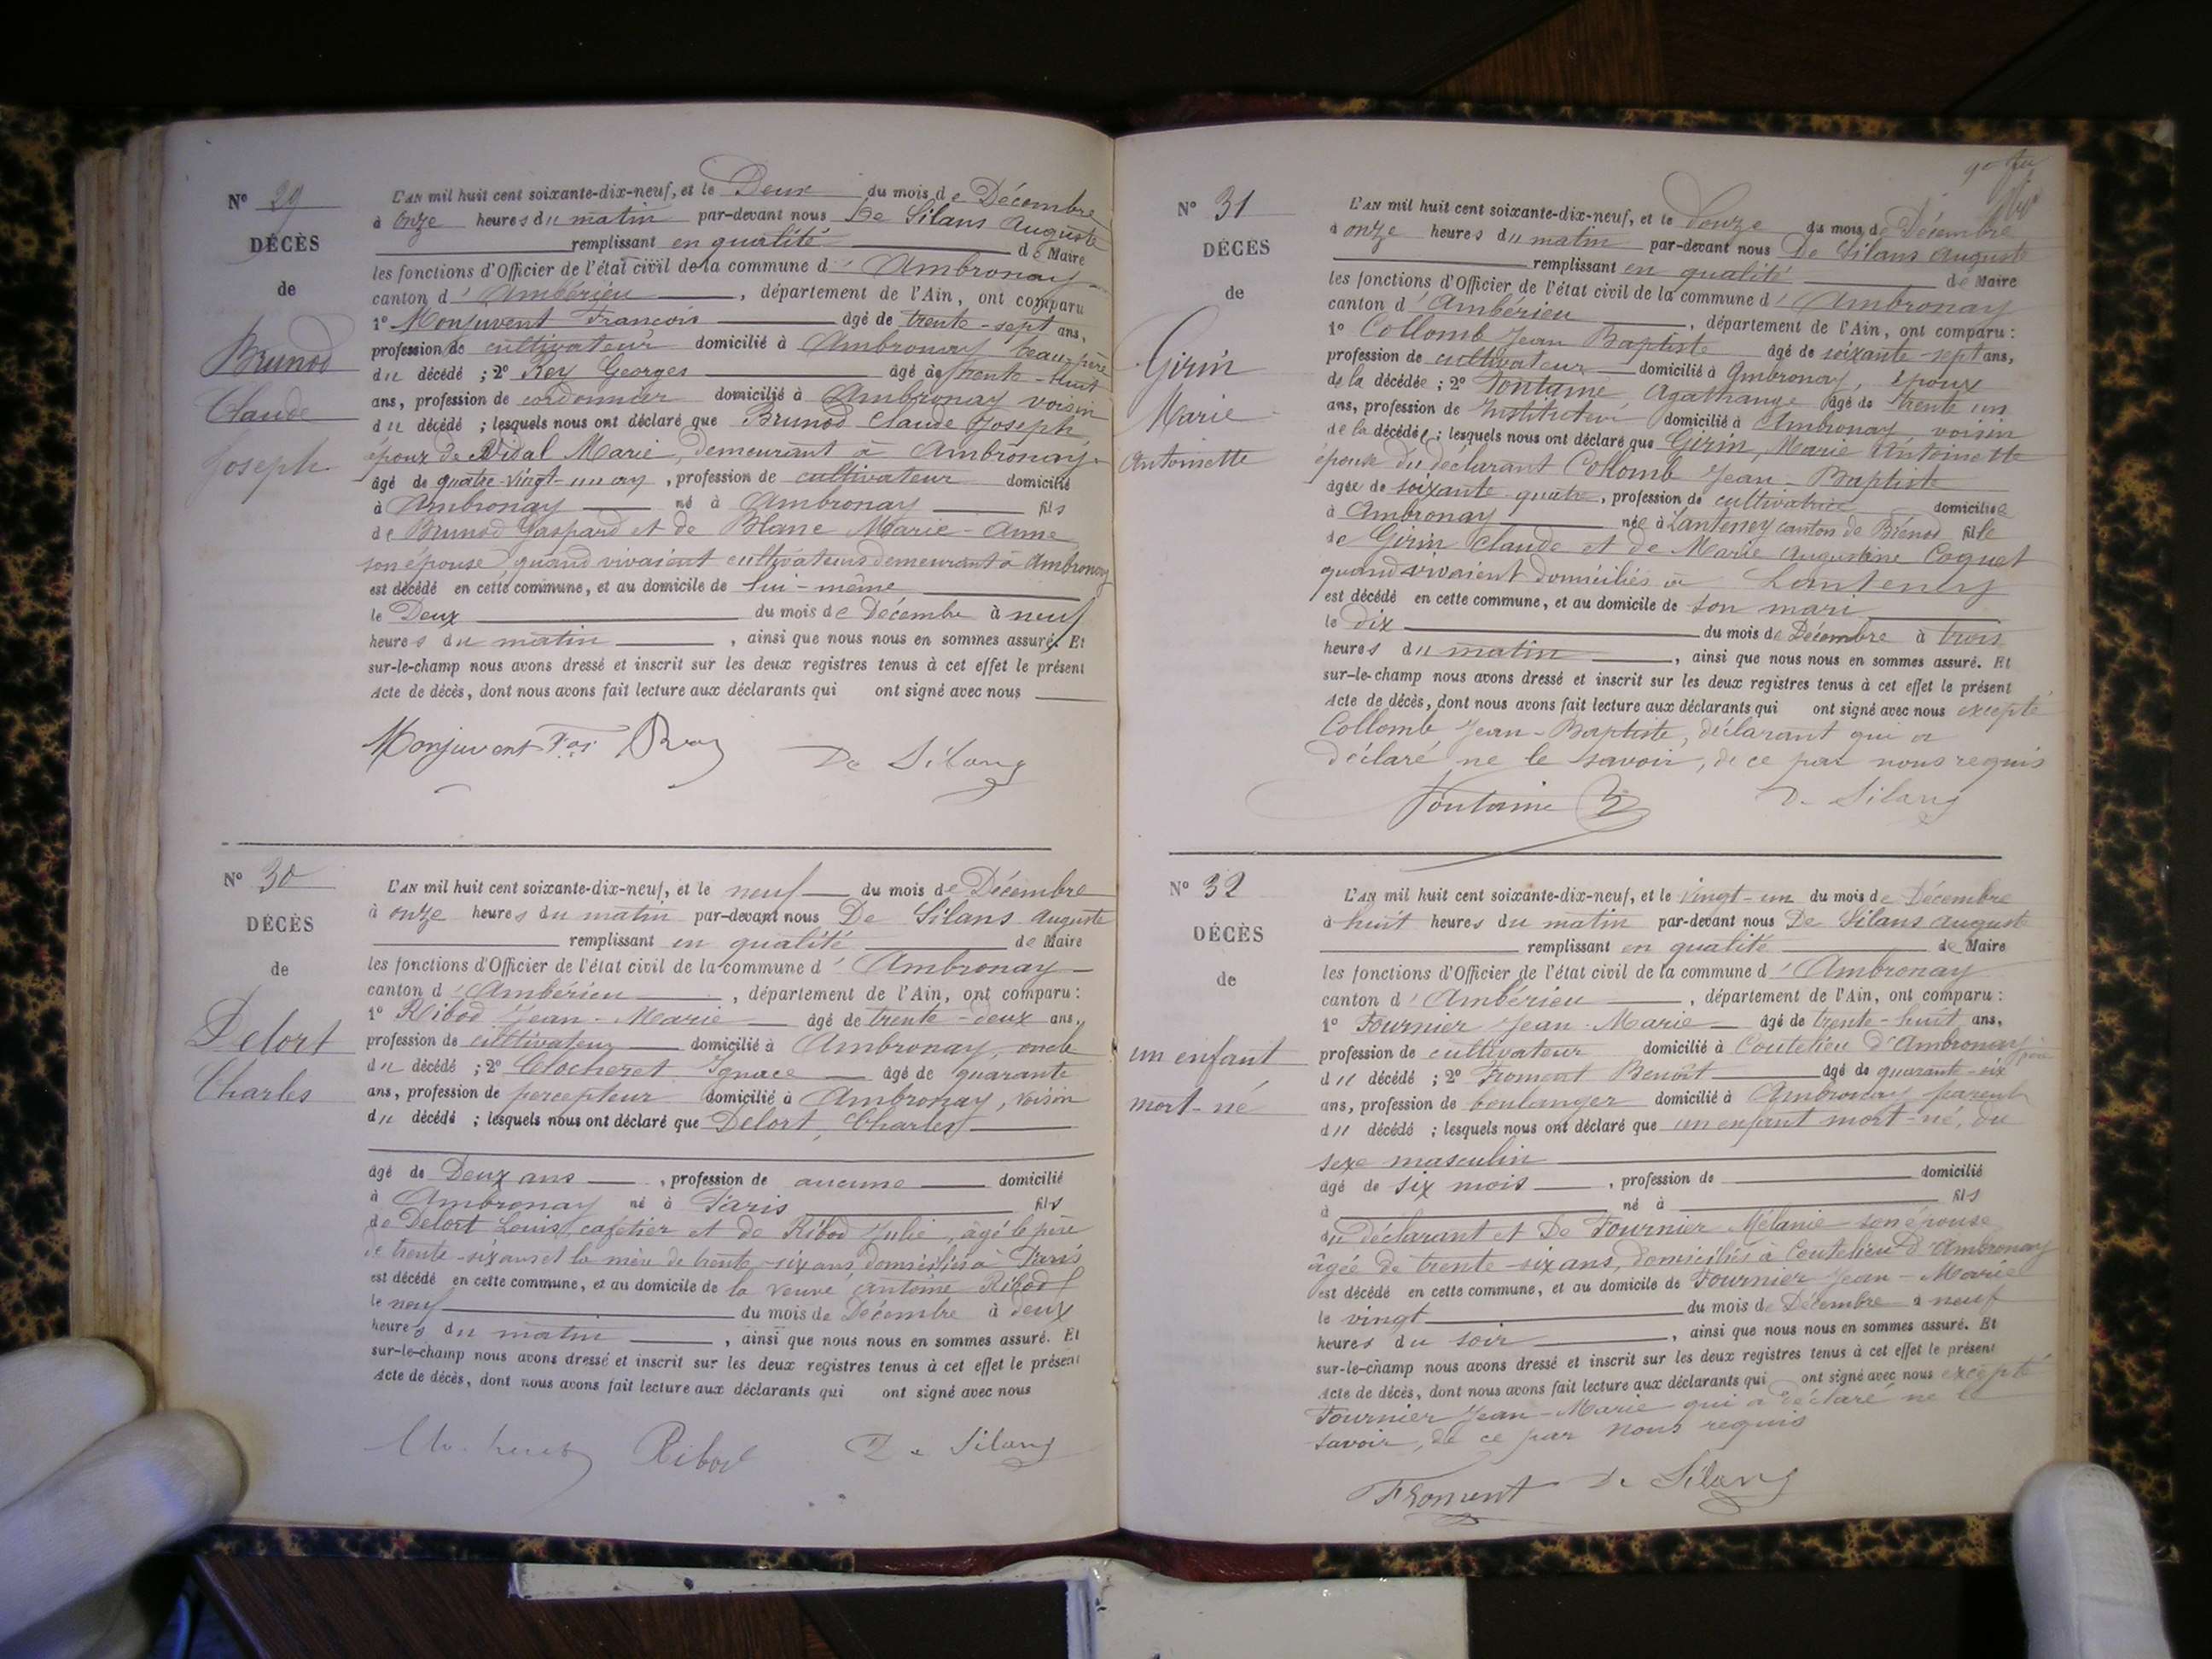 N° 29
DÉCÈS
de
Brunod
Claude
Joseph
L'AN mil huit cent soixante-dix-neuf, et le Deux du mois de Décembre
à onze heures du matin par-devant nous De Silans Auguste
remplissant en qualité de Maire
les fonctions d'Officier de l'état civil de la commune d'Ambronay
canton d'Ambérieu, département de l'Ain, ont comparu
1° Monjuvent François âgé de trente-sept ans,
profession de cultivateur domicilié à Ambronay beau-père
du décédé ; 2° Rey Georges âgé de trente-huit
ans, profession de cordonnier domicilié à Ambronay voisin
du décédé ; lesquels nous ont déclaré que Brunod Claude Joseph
époux de Vidal Marie, demeurant à Ambronay
âgé de quatre-vingt-un ans, profession de cultivateur domicilié
à Ambronay né à Ambronay fils
de Brunod Gaspard et de Blanc Marie-Anne
son épouse quand vivaient cultivateurs demeurant à Ambronay
est décédé en cette commune, et au domicile de lui-même
le Deux du mois de Décembre à neuf
heures du matin, ainsi que nous nous en sommes assuré. Et
sur-le-champ nous avons dressé et inscrit sur les deux registres tenus à cet effet le présent
Acte de décès, dont nous avons fait lecture aux déclarants qui ont signé avec nous
Monjuvent Fois Rey De Silans
N° 30
DÉCÈS
de
Delort
Charles
L'AN mil huit cent soixante-dix-neuf, et le neuf du mois de Décembre
à onze heures du matin par-devant nous De Silans Auguste
remplissant en qualité de Maire
les fonctions d'Officier de l'état civil de la commune d'Ambronay
canton d'Ambérieu, département de l'Ain, ont comparu :
1° Ribod Jean-Marie âgé de trente-deux ans,
profession de cultivateur domicilié à Ambronay, oncle
du décédé ; 2° Clocheret Ignace âgé de quarante
ans, profession de percepteur domicilié à Ambronay, voisin
du décédé ; lesquels nous ont déclaré que Delort, Charles
âgé de Deux ans, profession de aucune domicilié
à Ambronay né à Paris fils
de Delort Louis, cafetier et de Ribod Julie, âgé le père
de trente-six ans et la mère de trente-six ans domiciliés à Paris
est décédé en cette commune, et au domicile de la veuve Antoine Ribod
le neuf du mois de Décembre à deux
heures du matin, ainsi que nous nous en sommes assuré. Et
sur-le-champ nous avons dressé et inscrit sur les deux registres tenus à cet effet le présent
Acte de décès, dont nous avons fait lecture aux déclarants qui ont signé avec nous
Clocheret Ribod De Silans
N° 31
DÉCÈS
de
Girin
Marie
Antoinette
L'AN mil huit cent soixante-dix-neuf, et le Douze du mois de Décembre
à onze heures du matin par-devant nous De Silans Auguste
remplissant en qualité de Maire
les fonctions d'Officier de l'état civil de la commune d'Ambronay
canton d'Ambérieu, département de l'Ain, ont comparu :
1° Collomb Jean Baptiste âgé de soixante-sept ans,
profession de cultivateur domicilié à Ambronay, époux
de la décédée ; 2° Fontaine Agathange âgé de trente un
ans, profession de Instituteur domicilié à Ambronay voisin
de la décédée ; lesquels nous ont déclaré que Girin, Marie Antoinette
épouse du déclarant Collomb Jean-Baptiste
âgée de soixante-quatre, profession de cultivatrice domiciliée
à Ambronay née à Lanteney canton de Brénod fille
de Girin Claude et de Marie Augustine Coquet
quand vivaient domiciliés à Lantenay
est décédé en cette commune, et au domicile de son mari
le dix du mois de Décembre à trois
heures du matin, ainsi que nous nous en sommes assuré. Et
sur-le-champ nous avons dressé et inscrit sur les deux registres tenus à cet effet le présent
Acte de décès, dont nous avons fait lecture aux déclarants qui ont signé avec nous excepté
Collomb Jean-Baptiste, déclarant qui a
déclaré ne le savoir, de ce par nous requis
Fontaine De Silans
N° 32
DÉCÈS
de
un enfant
mort-né
L'AN mil huit cent soixante-dix-neuf, et le vingt-un du mois de Décembre
à huit heures du matin par-devant nous De Silans Auguste
remplissant en qualité de Maire
les fonctions d'Officier de l'état civil de la commune d'Ambronay
canton d'Ambérieu, département de l'Ain, ont comparu :
1° Fournier Jean-Marie âgé de trente-huit ans,
profession de cultivateur domicilié à Coutelieu d'Ambronay père
du décédé ; 2° Froment Benoît âgé de quarante-six
ans, profession de boulanger domicilié à Ambronay parent
du décédé ; lesquels nous ont déclaré que un enfant mort-né, du
sexe masculin
âgé de six mois, profession de domicilié
à né à fils
du déclarant et De Fournier Mélanie son épouse
âgée de trente-six ans, domiciliés à Coutelieu d'Ambronay
est décédé en cette commune, et au domicile de Fournier Jean-Marie
le vingt du mois de Décembre à neuf
heures du soir, ainsi que nous nous en sommes assuré. Et
sur-le-champ nous avons dressé et inscrit sur les deux registres tenus à cet effet le présent
Acte de décès, dont nous avons fait lecture aux déclarants qui ont signé avec nous excepté
Fournier Jean-Marie qui a déclaré ne le
savoir, de ce par nous requis
Froment De Silans